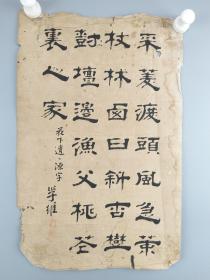 采菱渡頭風急策
杖林西日斜杏
壇邊漁父桃花
裏人家
花下遺一源字
學維